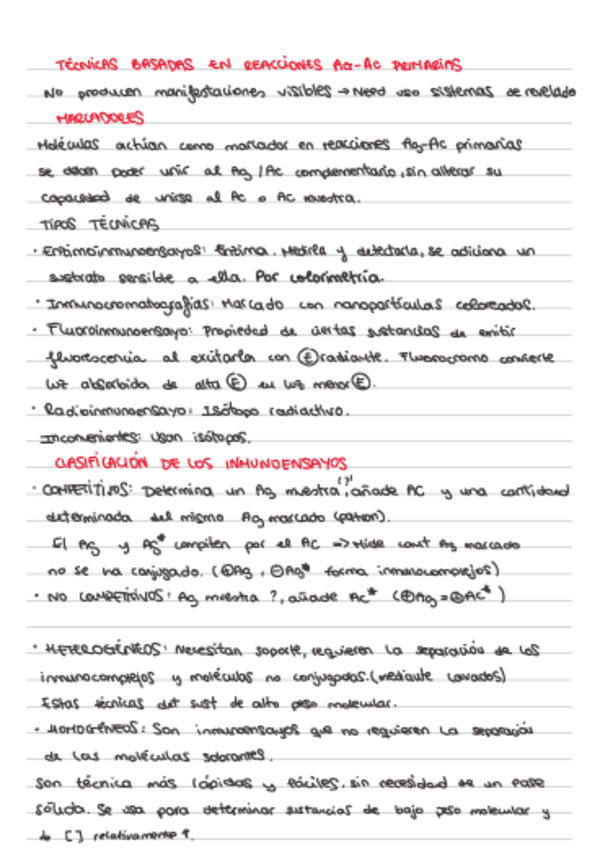 TÉCNICAS BASADAS EN REACCIONES AG-AC PRIMARIAS
No producen manifestaciones visibles → Need uso sistemas de revelado
MARCADORES
Moléculas actúan como marcador en reacciones Ag-Ac primarias
se deben poder unir al Ag / Ac complementario, sin alterar su
capacidad de unirse al Ac o Ac muestra.
TIPOS TÉCNICAS
· Enzimoinmunoensayos: Enzima. Medirla y detectarla, se adiciona un
sustrato sensible a ella. Por colorimetría.
· Inmunocromatografías: Marcado con nanopartículas coloreadas.
· Fluoroinmunoensayo: Propiedad de ciertas sustancias de emitir
fluorescencia al excitarla con Ⓔ radiante. Fluorocromo convierte
luz absorbida de alta Ⓔ en luz menor Ⓔ.
· Radioinmunoensayo: Isótopo radiactivo.
Inconvenientes: Usan isótopos.
CLASIFICACIÓN DE LOS INMUNOENSAYOS
· COMPETITIVOS: Determina un Ag muestra '?', añade AC y una cantidad
determinada del mismo Ag marcado (patrón).
El Ag y Ag* compiten por el AC => Mide cant Ag marcado
no se ha conjugado. (⊕Ag, ⊖Ag* forma inmunocomplejos)
· NO COMPETITIVOS: Ag muestra ?, añade Ac* (⊕Ag = ⊕AC*)
· HETEROGÉNEOS: Necesitan soporte, requieren la separación de los
inmunocomplejos y moléculas no conjugadas. (mediante lavados)
Estas técnicas det sust de alto peso molecular.
· HOMOGÉNEOS: Son inmunoensayos que no requieren la separación
de las moléculas sobrantes.
Son técnica más rápidas y fáciles. sin necesidad de un fase
sólida. Se usa para determinar sustancias de bajo peso molecular y
[ ] relativamente ↑.